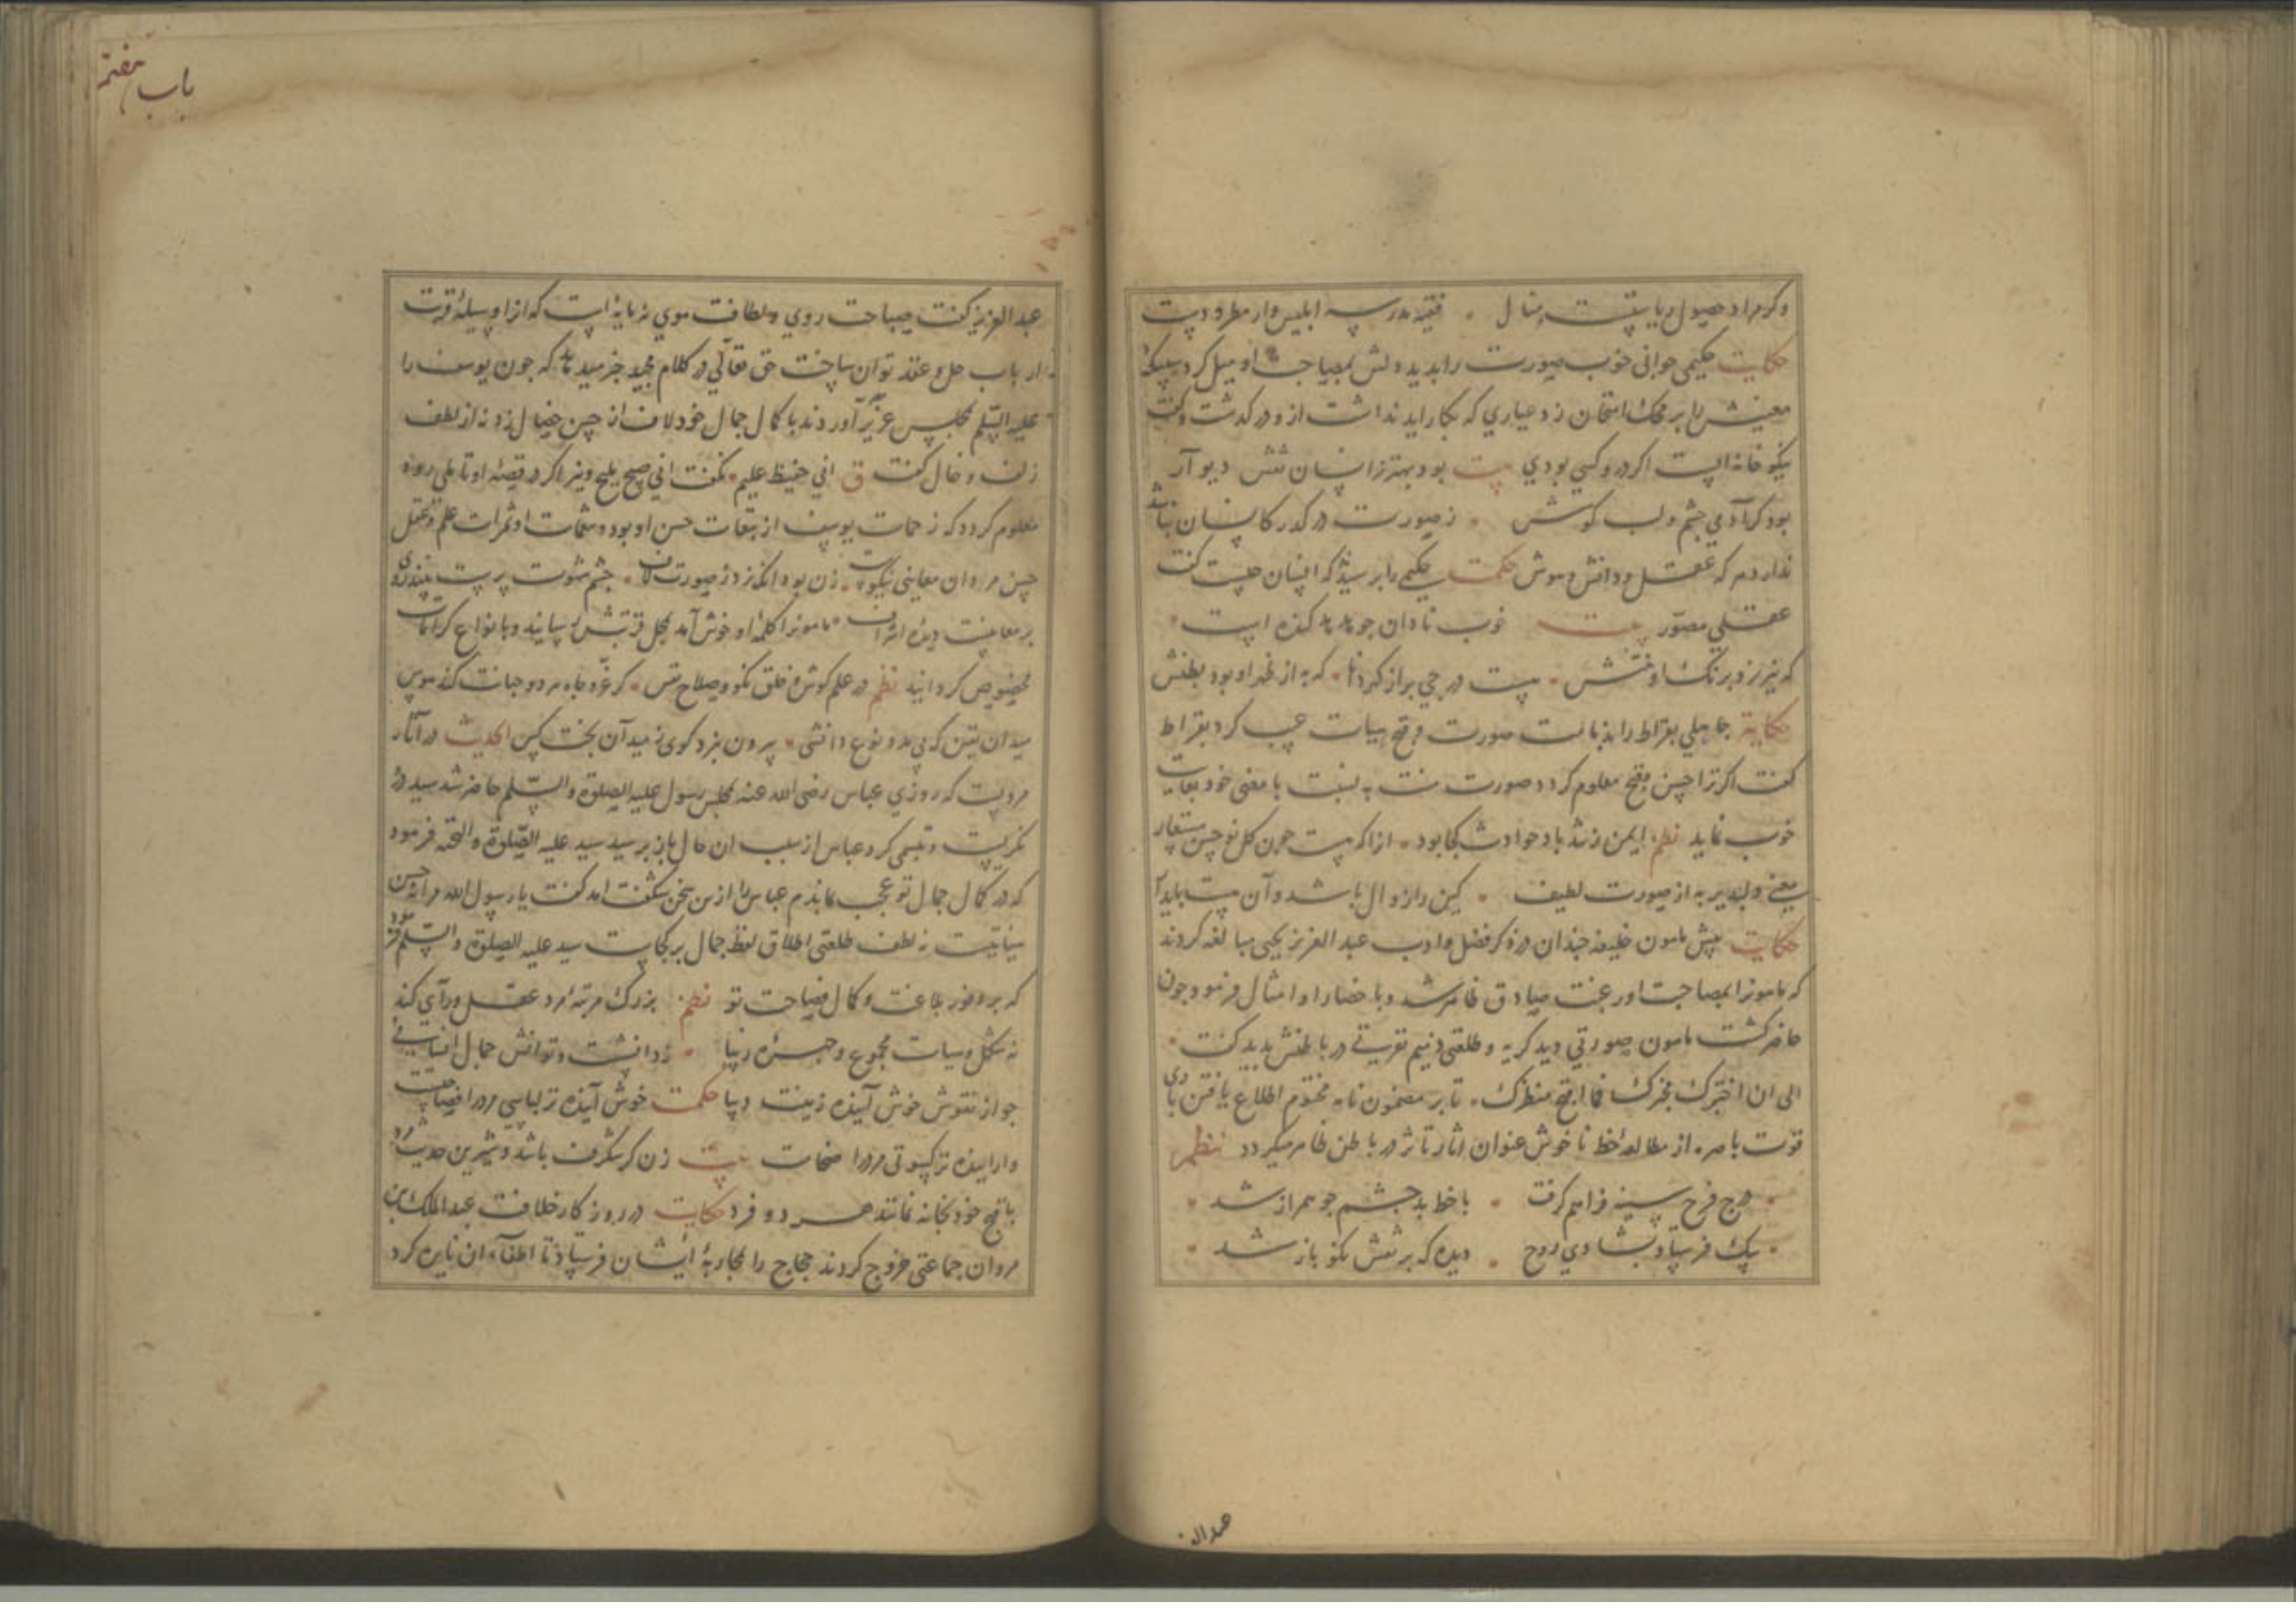 وکر مراد حصول ریاست منال فقیه مدرسه ابلیس وار مطرودست
حکایت حکیمی جوانی خوب صورت را بدید دلش بمصاحبت او میل کرد سیکه
معنیش را بر محک امتحان زد عیاری که بکار اید نداشت ازو درکدشت وکفت
نیکو خانه ایست اکر درو کسی بودی بیت بود بهتر ز انسان نقش دیوار
بود کر آدمی چشم ولب کوش ز صورت درکذر کانسان نباشد
ندارد هر که عقل ودانش وهوش حکمت حکیمی را پرسیدند که انسان چیست کفت
عقلی مصوّر بیت خوب نادان جو
که بزر زد برنک او نقشش هست درجی پر از کرد که به از غدر او بود بطنش
حکایة جاهلی بقراط را بذمامت صورت وقبح هیات عیب کرد بقراط
کفت اکر ترا حسن وقبح معلوم کردد صورت منت به نسبت با معنی خود بغایت
خوب نماید نظم ایمن ز تند باد حوادث کجا بود انرا که هست جون کل نو حسن مستعار
معنی دلپذیر به از صورت لطیف کین را زوال باشد وآن هست پایدار
حکایت پیش مامون خلیفه چندان در ذکر فضل وادب عبد العزیز یحیی مبالغه کردند
که مامونرا بمصاحبت او رغبت صادق ظاهر شد وباحضار او امثال فرمود جون
حاضر کشت مامون صورتی دید کریه وطلعتی ذمیم نفرتی در باطنش بدید کشت
الی ان اخترک مخبرک فما اقبح منظرک تا بر مضمون نامه مختوم اطلاع یافتن باری
قوت باصره از مطالعهٔ خط ناخوش عنوان اثار تاثر در باطن ظاهر میکردد نظم
درج فرح سینه فراهم کرفت با خط بد چشم جو همراز شد
پیک فرستاد بشادی روح دیده که بر نقش نکو باز شد
عبدالعز
باب هفتم
عبد العزیز کفت صباحت روی ولطافت موی نه پایهٔ ایست که ازا وسیلهٔ قربت
ارباب حل وعقد توان ساخت حق تعالی در کلام مجید خبر میدهد که جون یوسف را
علیه السّلم بمجلس عزیز آوردند با کمال جمال خود لاف از حسن خیال زد نه از لطف
زلف وخال کفت ق انی حفیظ علیم نکفت انی صبیح ملیح ونیز اکر در قصهٔ او تاملی رود
معلوم کردد که زحمات یوسف از تبعات حسن او بود ونعمات او ثمرات علم وعقل
حسن مردان معاینی نیکوست زن بود انکه زد ز صورت لاف چشم شهوت پرست بیند روی
بر معانیست دیده اشراف مامونرا کلمهٔ او خوش آمد بمحل قربتش رسانید وبانواع کرامات
مخصوص کردانید نظم در علم کوش وخلق نکو وصلاح نفس کر عزّ وجاه هر دو جهانت کند هوس
میدان یقین که بی مدد نوع دانشی بیرون نبرد کوی ز میدان بخت کس الحدیث در آثار
مرویست که روزی عباس رضی الله عنه بمجلس رسول علیه الصلوة والسّلم حاضر شد سید درو
نکریست وتبسمی کرد عباس از سبب ان حال باز پرسید سید علیه الصّلوة والتحیه فرمود
که در کمال جمال تو عجب ماندم عباس را ازین سخن شکفت امد کفت یا رسول الله مرا نه حسن
نه لطف طلعتی اطلاق لفظ جمال بر کجاست سید علیه الصلوة والسّلم فرمود
که بر وفور بلاغت وکمال فصاحت تو نظم بزرک مرتبه مرد عقل ورای کند
نه شکل وهیات مجموع وچهرهٔ زیبا ز دانشت وتوانش جمال انسانی
جو از نقوش خوش آینده زینت دیبا حکمت خوش آینده تر لباسی مرد را فصاحتست
واراینده تر کسوتی مرد را ضخامت بیت زن کر شکرف باشد وشیرین حدیث مرد
با قبح خود بخانه نمانند هر دو فرد حکایت در روزکار خلافت عبد الملک بن
مروان جماعتی خروج کردند حجاج را بمحاربهٔ ایشان فرستاد تا اطفآء ان نایره کرد